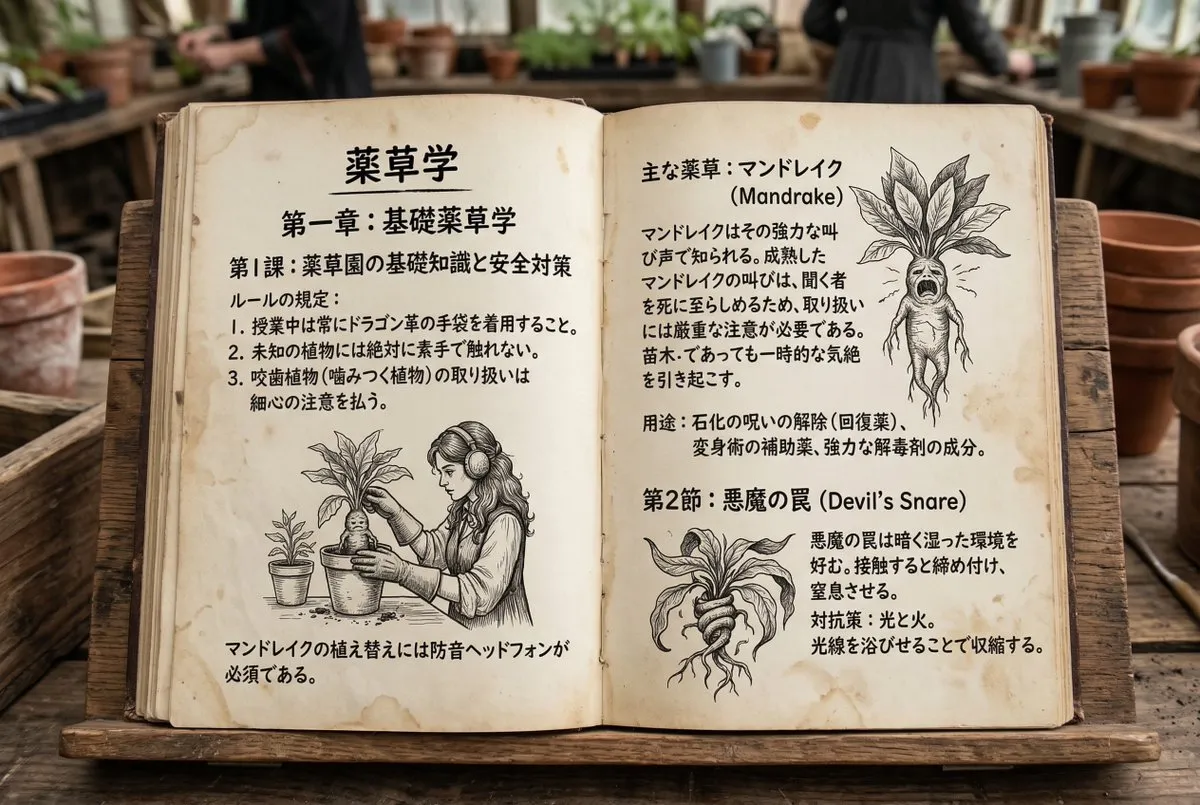 薬草学
第一章：基礎薬草学
第1課：薬草園の基礎知識と安全対策
ルールの規定：
1. 授業中は常にドラゴン革の手袋を着用すること。
2. 未知の植物には絶対に素手で触れない。
3. 咬歯植物（噛みつく植物）の取り扱いは
細心の注意を払う。
マンドレイクの植え替えには防音ヘッドフォンが
必須である。
主な薬草：マンドレイク
(Mandrake)
マンドレイクはその強力な叫
び声で知られる。成熟した
マンドレイクの叫びは、聞く者
を死に至らしめるため、取り扱い
には厳重な注意が必要である。
苗木・であっても一時的な気絶
を引き起こす。
用途：石化の呪いの解除（回復薬）、
変身術の補助薬、強力な解毒剤の成分。
第2節：悪魔の罠 (Devil's Snare)
悪魔の罠は暗く湿った環境を
好む。接触すると締め付け、
窒息させる。
対抗策：光と火。
光線を浴びせることで収縮する。